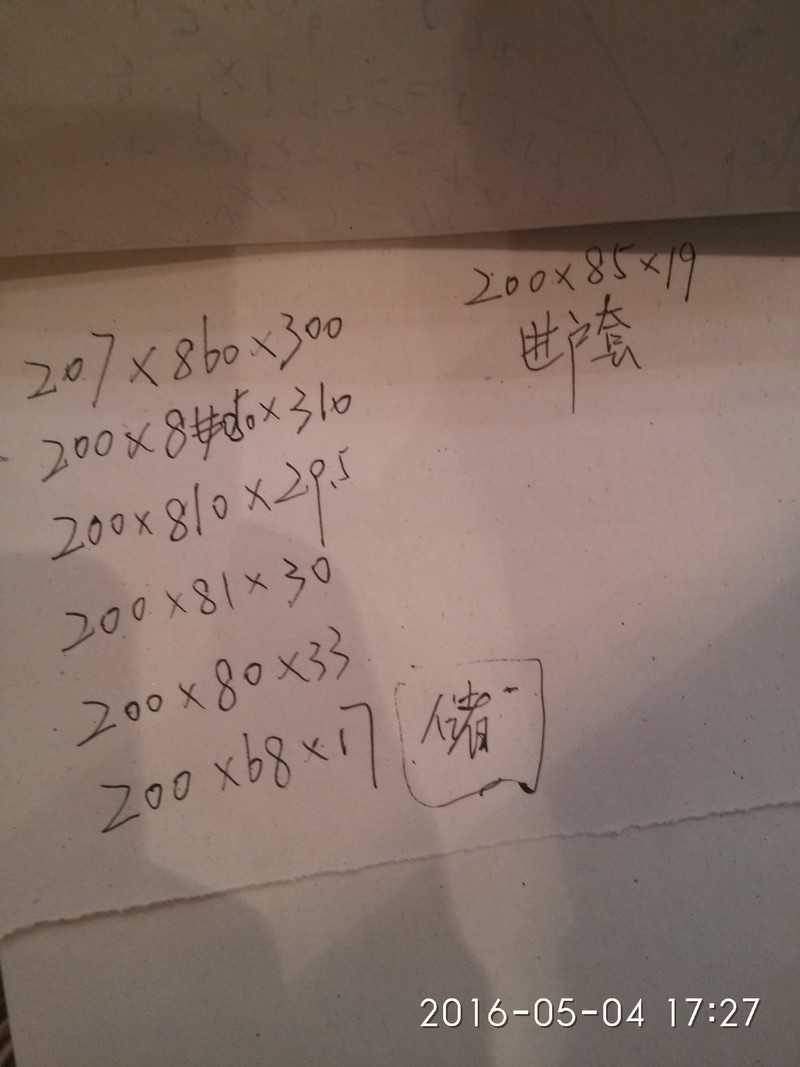 200×85×19
进户套
207×860×300
200×850×310
200×810×29.5
200×81×30
200×80×33
200×68×17
储
2016-05-04 17:27